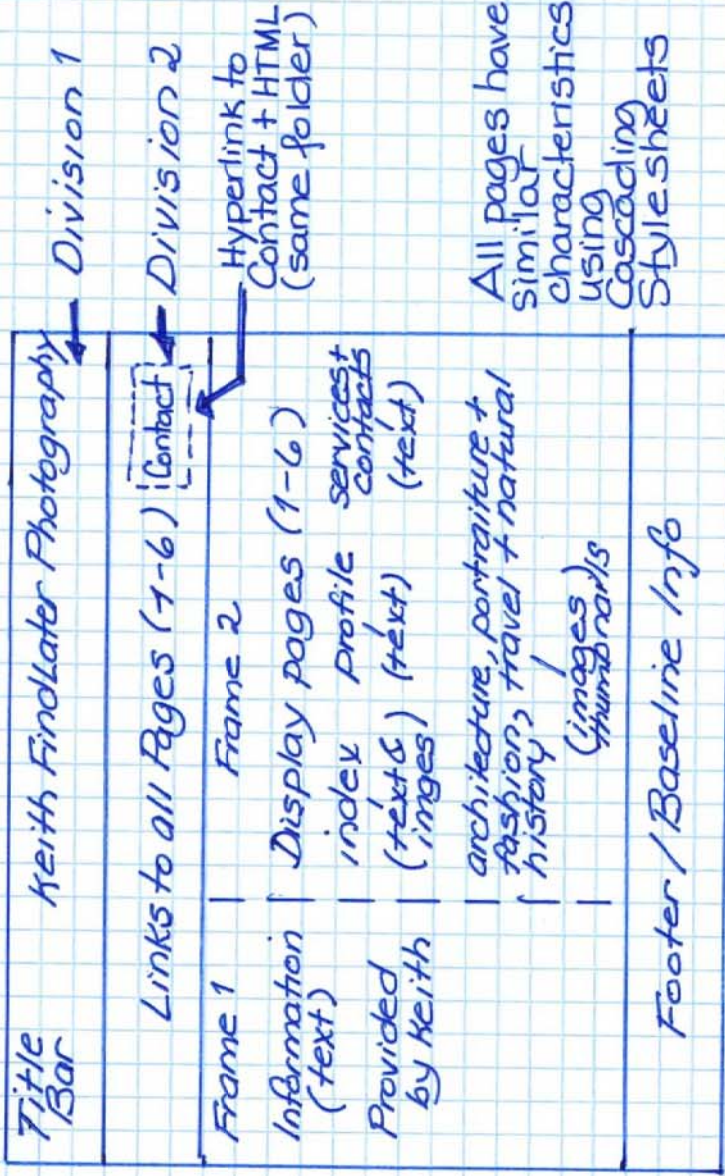 Title
Bar
Keith FindLater Photography
Division 1
Links to all Pages (1-6)
Contact
Division 2
Hyperlink to
Contact + HTML
(same folder)
Frame 1
Information
(text)
Provided
by Keith
Frame 2
Display pages (1-6)
index profile services+
contacts
(text & (text) (text)
imges)
architecture, portraiture +
fashion, travel + natural
history
(images)
thumbnails
All pages have
similar
characteristics
using
Cascading
Stylesheets
Footer / Baseline Info